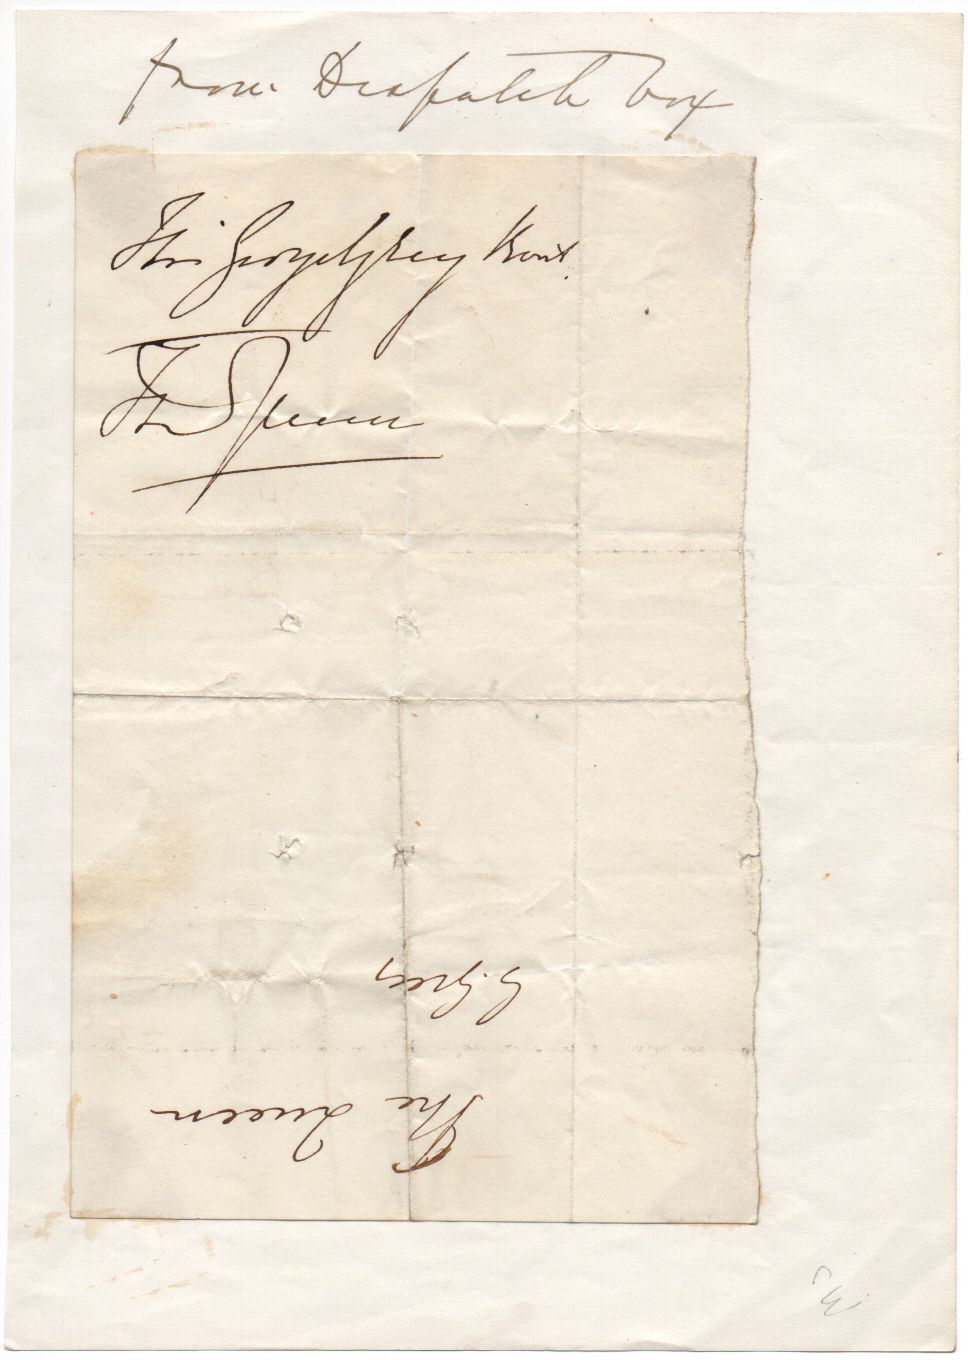 from Despatch box
Sir George Grey Bart
The Queen
G. Grey
The Queen